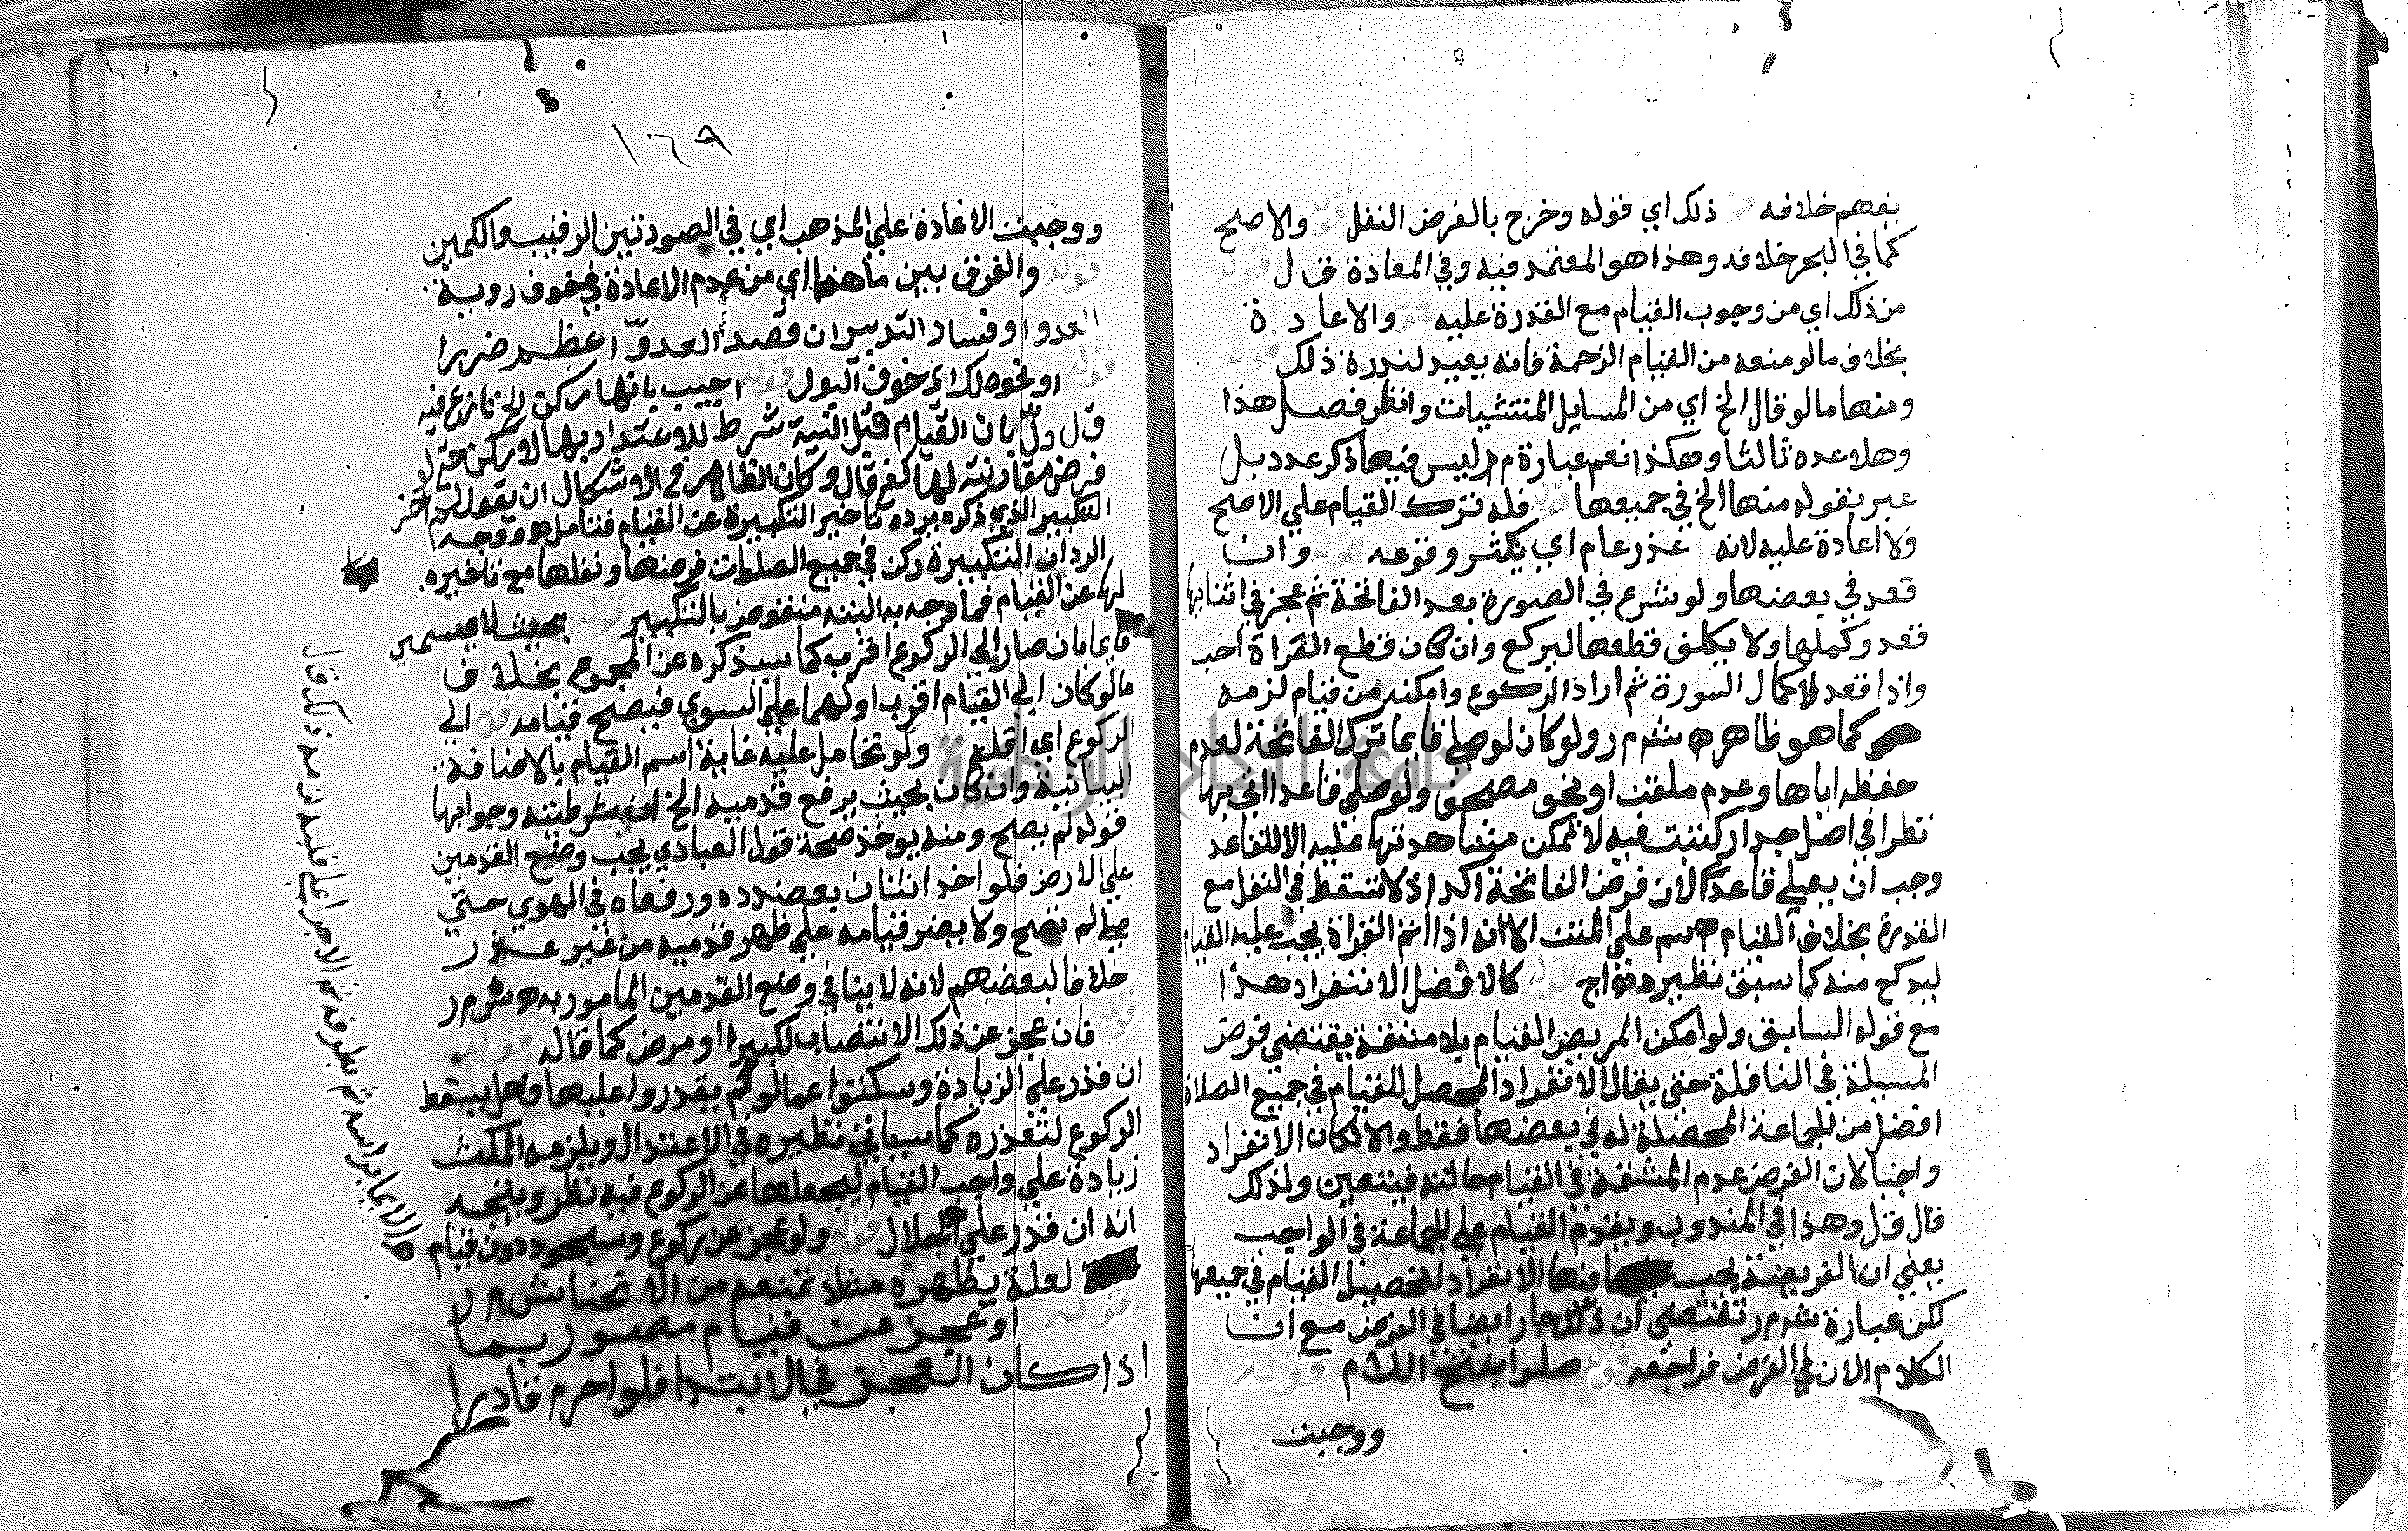 يفهم خلافه ذلك اي قوله وخرج بالفرض النفل والاصح
كما في البحر خلافه وهذا هو المعتمد فيه وفي المعادة ق ل
من ذلك اي من وجوب القيام مع القدرة عليه والاعادة
بخلاف ما لو منعه من القيام الزحمة فانه يعيد لندرة ذلك
ومنها ما لو قال الخ اي من المسايل المستثنيات وانظر فصل هذا
وهلا عده ثالثا وهكذا نعم عبارة م ر ليس فيها ذكر عدد بل
عبر بقوله منها الخ في جميعها فله ترك القيام علي الاصح
ولا اعادة عليه لانه عذر عام اي يكثر وقوعه وان
قعد في بعضها ولو شرع في الصورة بعد الفاتحة ثم عجز في اثنايها
قعد وكملها ولا يكلف قطعها ليركع وان كان قطع القراة احب
واذا قعد لاكمال السورة ثم اراد الركوع وامكنه من قيام لزمه
كما هو ظاهر ه ش م ر ولو كان لو صلي قايما ترك الفاتحة لعدم
حفظه اياها وعدم ملقن او نحو مصحف ولو صلي قاعدا اتي بها
نظرا في اصل جدار كتبت فيه لا يمكن مشاهدتها عليه الا للقاعد
وجب ان يصلي قاعدا لان فرض الفاتحة اكد اذ لا تسقط في النفل مع
القدرة بخلاف القيام ه سم علي المتن الا انه اذا اتم القراة يجب عليه القيام
ليركع منه كما سبق نظيره فواج كالافضل الانفراد هذا
مع قوله السابق ولو امكن المريض القيام بلا مشقة يقتضي فرض
المسيلة في النافلة حتي يقال الانفراد المحصل للقيام في جميع الصلاة
افضل من الجماعة المحصلة له في بعضها فقط والا لكان الانفراد
واجبا لان الفرض عدم المشقة في القيام حالته فيتعين ولذلك
قال ق ل وهذا في المندوب ويقدم القيام علي الجماعة في الواجب
يعني ان الفريضة يجب فيها الانفراد لتحصيل القيام في جميعها
لكن عبارة ش م ر تقتضي ان ذلك جار ايضا في الفرض مع ان
الكلام الان في الفرض فراجعه صلوا بفتح اللام
ووجبت
١٦٩
ووجبت الاعادة علي المذهب اي في الصورتين الرقيب والكمين
قوله والفرق بين ما هنا اي من عدم الاعادة في خوف روية
العدو او فساد التدبير ان قصد العدو اعظم ضررا
قوله او نحو ذلك اي خوف البول اجيب بانها ركن الخ نازع فيه
ق ل بان القيام قبل النية شرط للاعتداد بها لا ركن حتي لو
فرض مقارنته لها كفي قال وكان الظاهر في الاشكال ان يقول لم اخر
التكبير الذي ذكره يرده تاخير التكبيرة عن القيام فتامل ه ووجه
الرد ان التكبيرة ركن في جميع الصلوات فرضها ونفلها مع تاخيره
لها عن القيام فما وجه به النية منقوض بالتكبير بحيث لا يسمي
قايما بان صار الي الركوع اقرب كما سيذكره عن المجموع بخلاف
ما لو كان الي القيام اقرب او لهما علي السوي فيصح قيامه الي
الركوع اي اقله ولو تحامل عليه غاية اسم القيام بالاضافة
البيانية وان كان بحيث يرفع قدميه الخ ان شرطيته وجوابها
قوله لم يصح ومنه يوخذ صحة قول العبادي يجب وضع القدمين
علي الارض فلو اخذ اثنان بعضدده ورفعاه في الهوي حتي
صلي لم تصح ولا يضر قيامه علي ظهر قدميه من غير عذر
خلافا لبعضهم لانه لا ينافي وضع القدمين المامور به ه ش م ر
قوله فان عجز عن ذلك الانتصاب لكبير او مرض كما قاله
ان قدر علي الزيادة وسكتوا عما لو لم يقدروا عليها وهل يسقط
الركوع لتعذره كما سياتي نظيره في الاعتدال ويلزمه المكث
زيادة علي واجب القيام ليجعلها عن الركوع فيه نظر ويتجه
انه ان قدر علي الجلال ولو عجز عن ركوع وسجود دون قيام
لعلة بظهره مثلا تمنعه من الانحنا ش م ر
قوله او عجز عن قيام مصور بما
اذا كان العجز في الابتدا فلو احرم قادرا